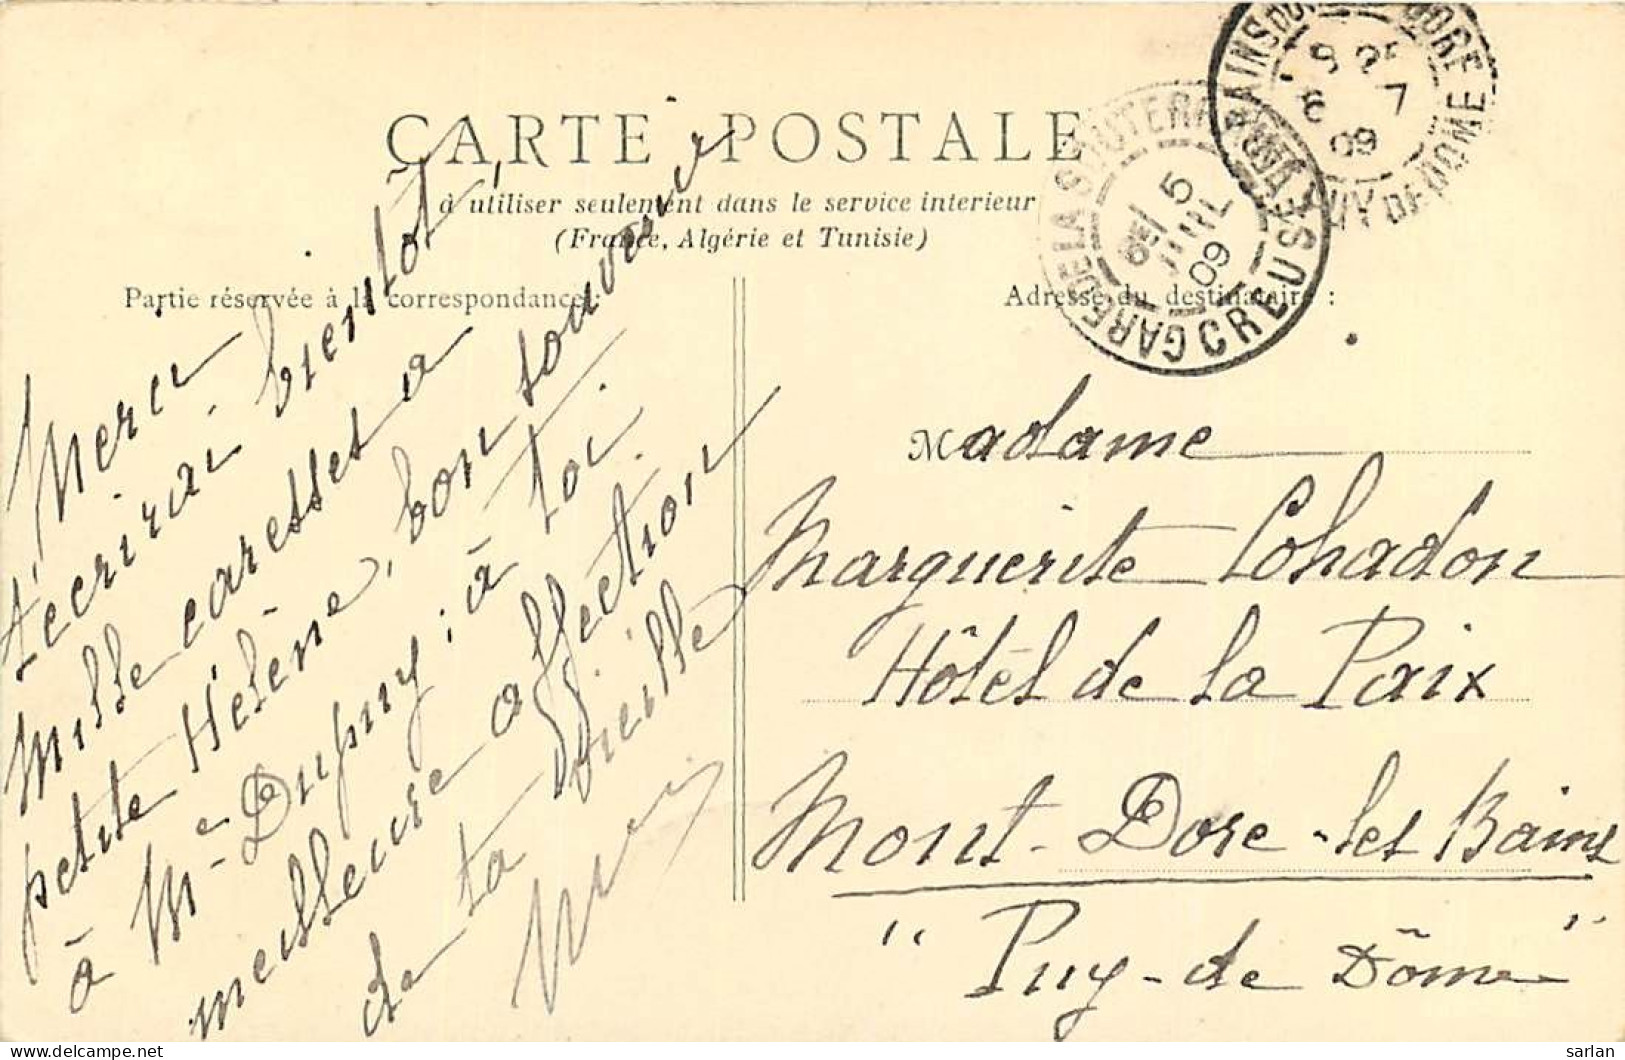 CARTE POSTALE
à utiliser seulement dans le service interieur
(France, Algérie et Tunisie)
Partie réservée à la correspondance :
Adresse du destinataire :
Merci
t'écrirai bientôt,
mille caresses à
petite Hélène, bon souvenir
à Mme Dupuy ; à toi
meilleure affection
de ta vieille
Madame
Marguerite Cohadon
Hôtel de la Paix
Mont-Dore-les Bains
"Puy-de Dôme"
GARE DE LA SOUTERRAINE
CREUSE
5
JUIL
09
PUY DE DÔME
8 25
6 7
09
delcampe.net
sarlan